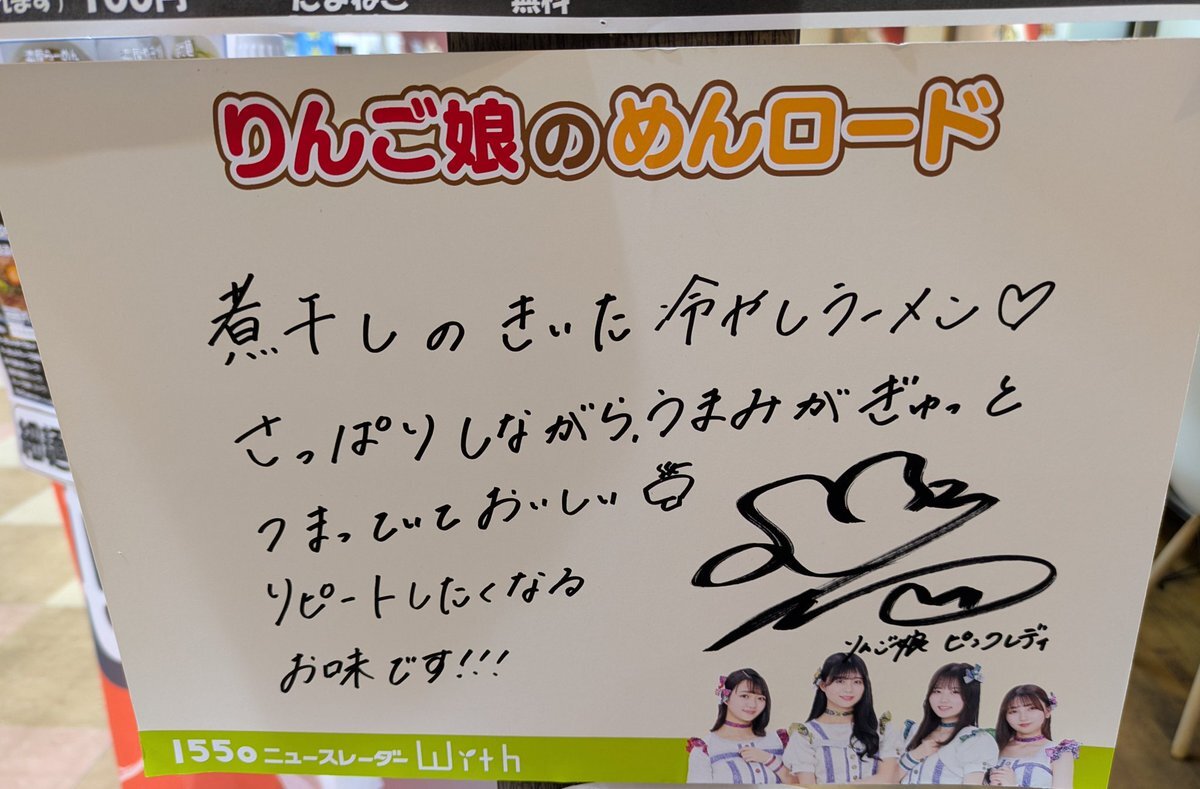 100円
無料
りんご娘のめんロード
煮干しのきいた冷やしラーメン♡
さっぱりしながら、うまみがぎゅっと
つまっていておいしい
リピートしたくなる
お味です!!!
りんご娘 ピンクレディ
1550ニュースレーダー With